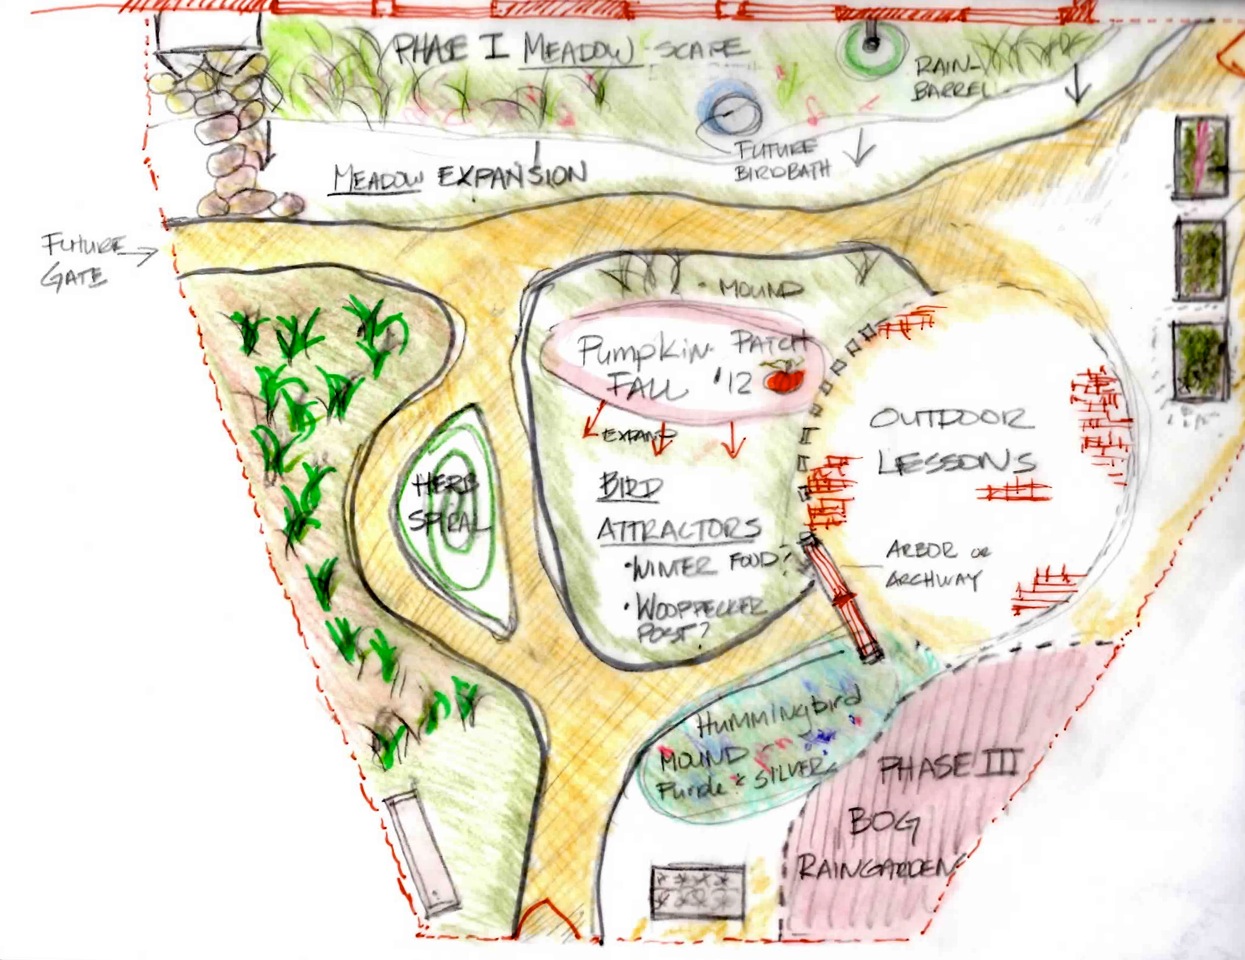 PHASE I MEADOW-SCAPE
RAIN-
BARREL
FUTURE
BIRDBATH
MEADOW EXPANSION
FUTURE
GATE
MOUND
Pumpkin PATCH
FALL '12
EXPAND
OUTDOOR
LESSONS
HERB
SPIRAL
BIRD
ATTRACTORS
• WINTER FOOD?
• WOODPECKER
POST?
ARBOR OR
ARCHWAY
Hummingbird
MOUND
Purple & SILVER
PHASE III
BOG
RAINGARDEN